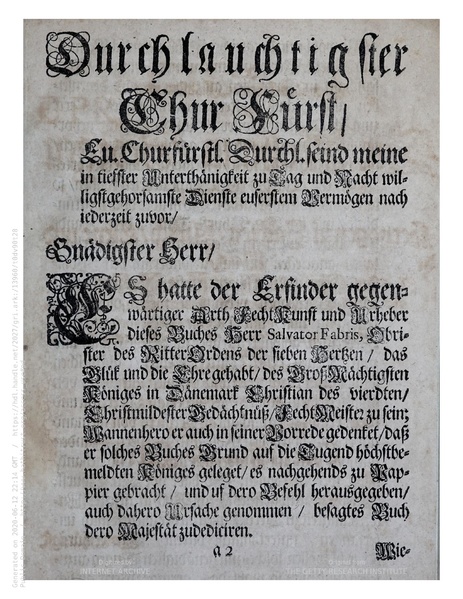 Durchlauchtigster
Chur Fürst/
Eu. Churfürstl. Durchl. seind meine
in tieffster Unterthänigkeit zu Tag und Nacht wil-
ligstgehorsamste Dienste euserstem Vermögen nach
iederzeit zuvor/
Gnädigster Herr/
ES hatte der Erfinder gegen-
wärtiger Arth FechtKunst und Urheber
dieses Buches Herr Salvator Fabris, Obri-
ster des RitterOrdens der sieben Hertzen / das
Glük und die Ehre gehabt/ des GroßMächtigsten
Königes in Dänemark Christian des vierdten/
Christmildester Gedächtnüß/ FechtMeister zu sein;
Wannenhero er auch in seiner Vorrede gedenket/ daß
er solches Buches Grund auf die Tugend höchstbe-
meldten Königes geleget/ es nachgehends zu Pap-
pier gebracht / und uf dero Befehl herausgegeben/
auch dahero Ursache genommen / besagtes Buch
dero Majestät zudediciren.
a 2
Wie-
INTERNET ARCHIVE
THE GETTY RESEARCH INSTITUTE